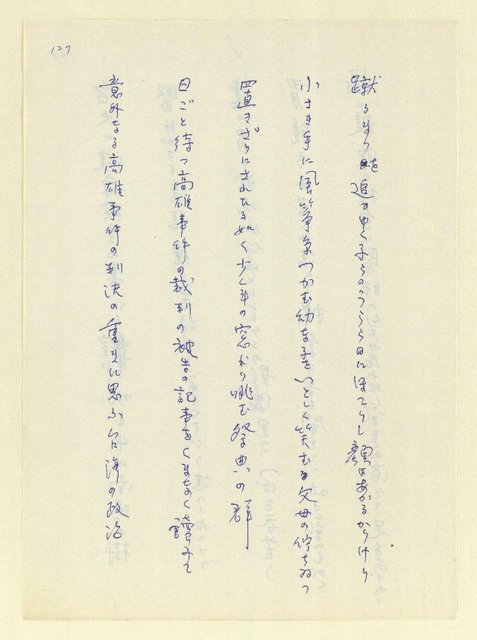 127
蹴るまり追ひゆく子らのうらら日にほてりし顔はあかるかりけり
小さき手に風箏糸つかむ幼な子をいとしく笑むる父母の佇ちゐつ
置きざりにされたる如く少年の窓より眺む祭典の群
日ごと待つ高雄事件の裁判の被告の記事をくまなく讀みて
意外なる高雄事件の判決の重きに思ふ台湾の政治